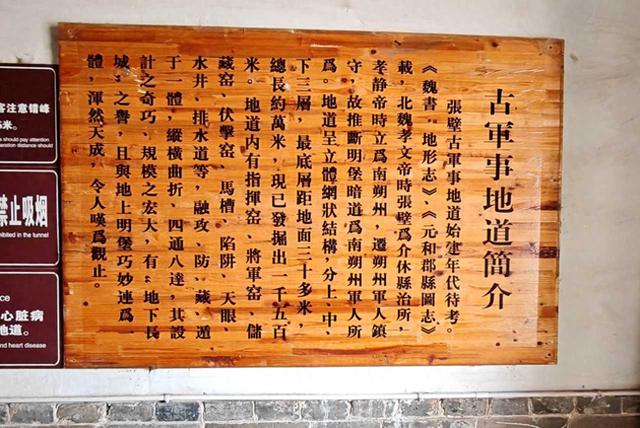 古軍事地道簡介
張壁古軍事地道始建年代待考。
《魏書·地形志》、《元和郡縣圖志》
載，北魏孝文帝時張壁爲介休縣治所，
孝静帝時立爲南朔州，遷朔州軍人鎮
守，故推斷明堡暗道爲南朔州軍人所
爲。地道呈立體網狀結構，分上、中、
下三層，最底層距地面二十多米，
總長約萬米，現已發掘出一千五百
米。地道内有指揮窑、將軍窑、儲
藏窑、伏擊窑、馬槽、陷阱、天眼、
水井、排水道等，融攻、防、藏、遁
于一體，縱横曲折、四通八達，其設
計之奇巧、規模之宏大，有“地下長
城”之譽，且與地上明堡巧妙連爲一
體，渾然天成，令人嘆爲觀止。
客注意错峰
米。
should pay attention
distance should
禁止吸烟
in the tunnel
心脏病
地道。
heart disease